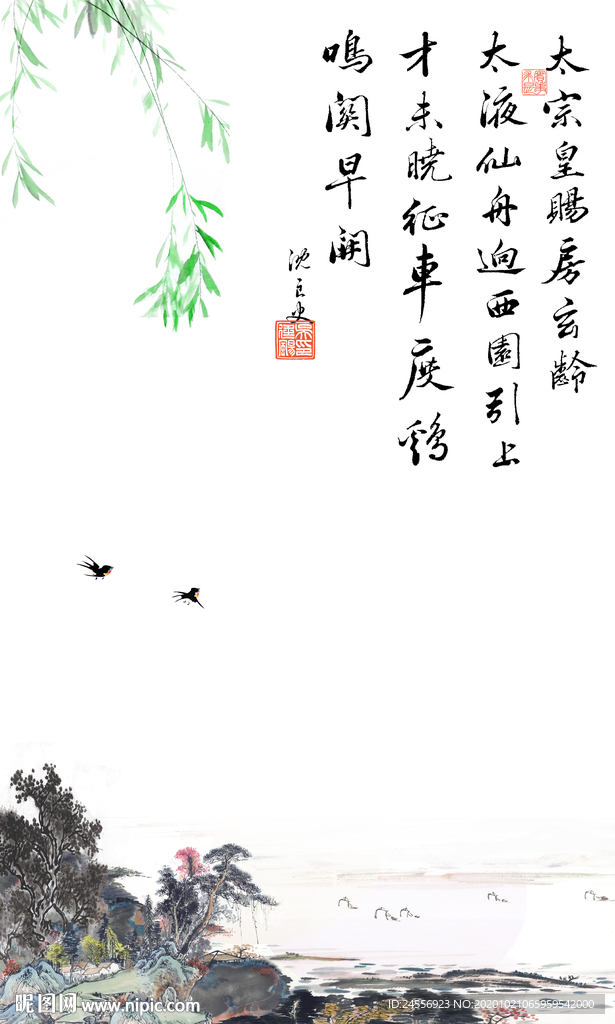 太宗皇賜房玄齡
太液仙舟迥西園引上
才未曉征車度鷄
鳴關早開
沈良史
昵图网 www.nipic.com
ID:24556923 NO:20201021065959542000